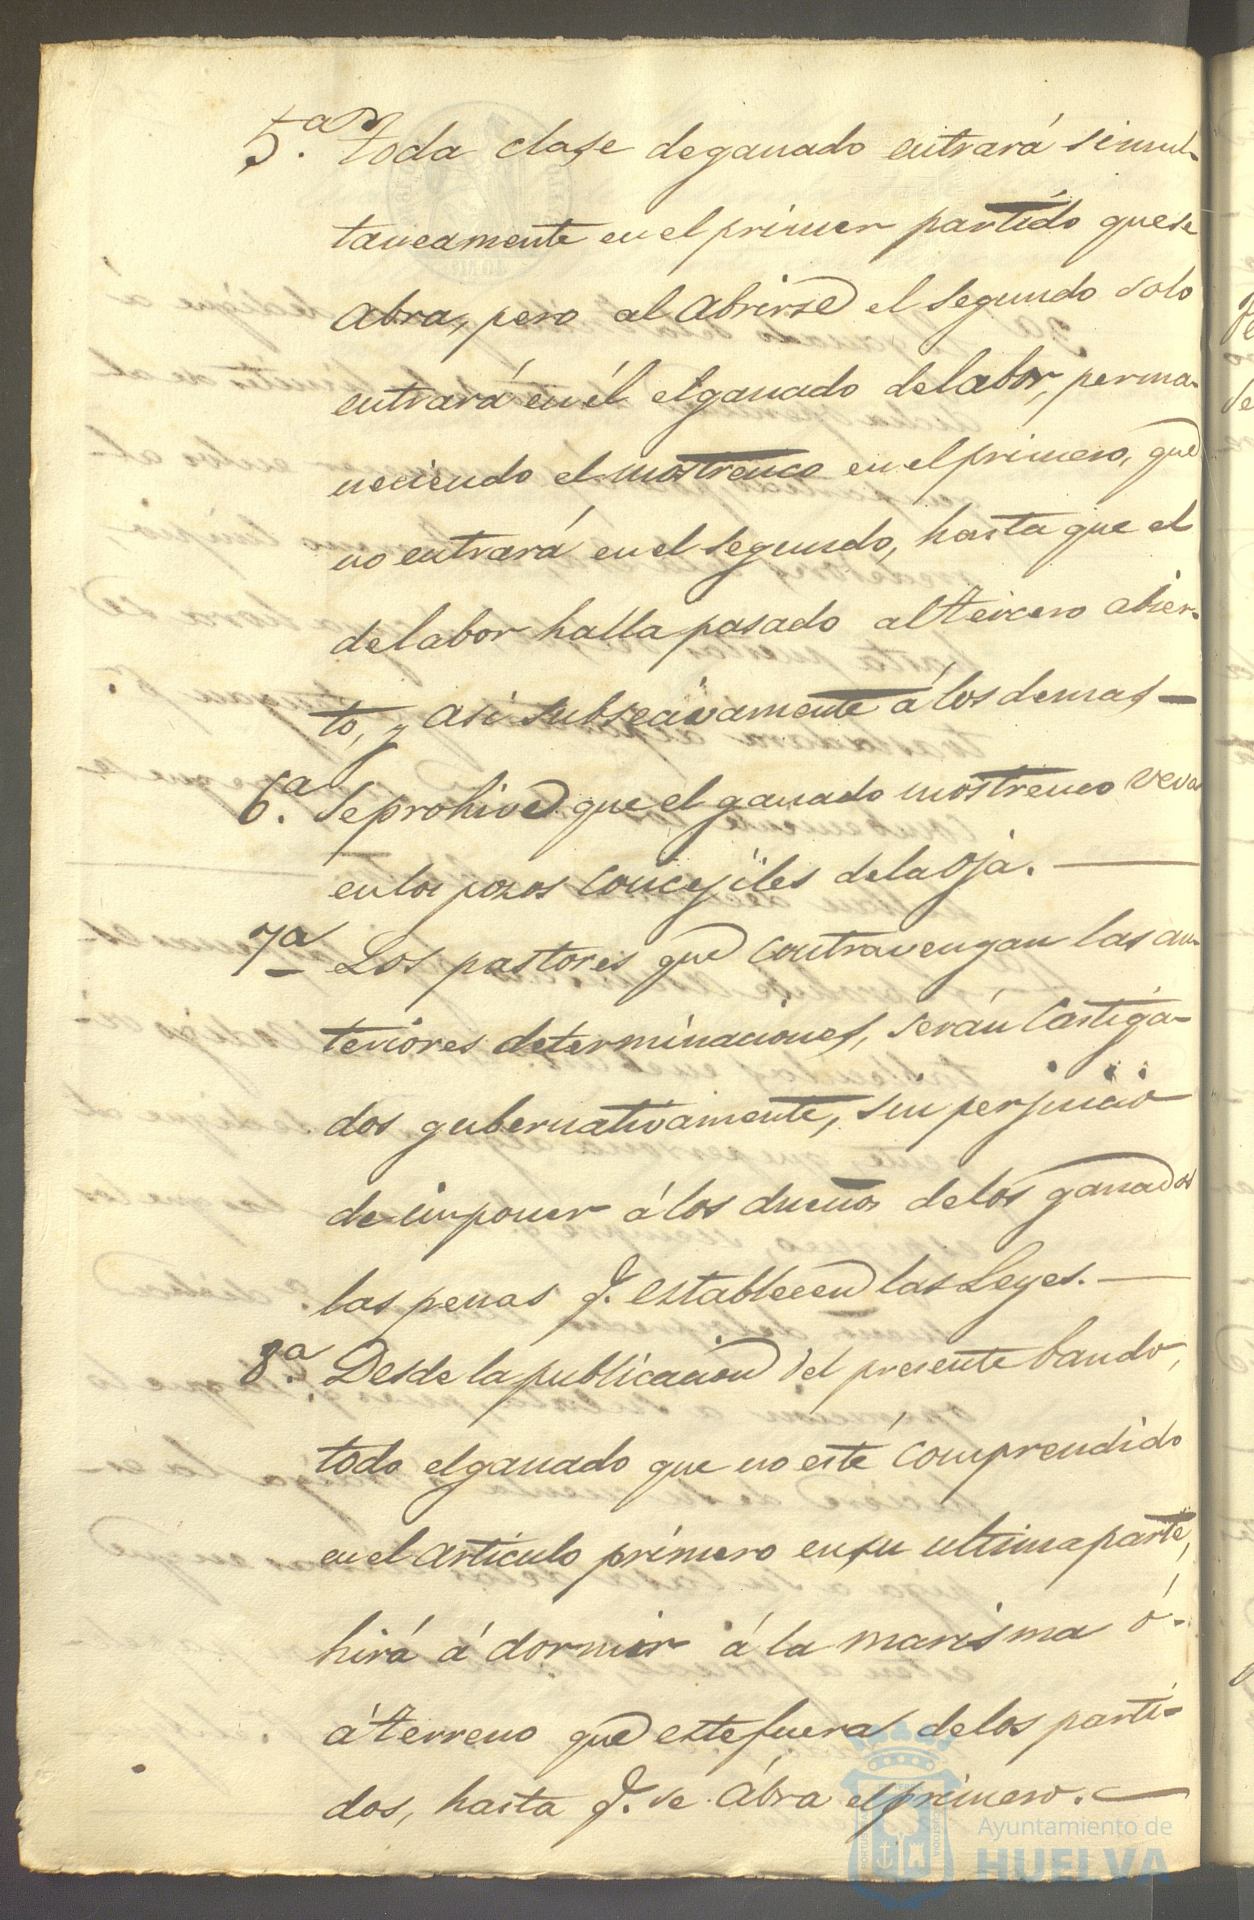 5.ª toda clase de ganado entrará simul-
taneamente en el primer partido que se
abra, pero al abrirse el segundo solo
entrará en él el ganado de labor, perma-
neciendo el mostrenco en el primero, que
no entrará en el segundo, hasta que el
de labor halla pasado al tercero abier-
to, y asi subseciivamente á los demas
6.ª Se prohive que el ganado mostrenco veva
en los pozos concejiles de la oja.
7ª Los pastores que contravengan las an-
teriores determinaciones, serán castiga-
dos gubernativamente, sin perjuicio
de imponer á los dueños de los ganados
las penas q. establecen las Leyes.
8.ª Desde la publicacion del presente bando,
todo el ganado que no esté comprendido
en el articulo primero en su ultima parte,
hirá á dormir á la marisma ó
á terreno que este fuera de los parti-
dos, hasta q. se abra el primero.
Ayuntamiento de
HUELVA